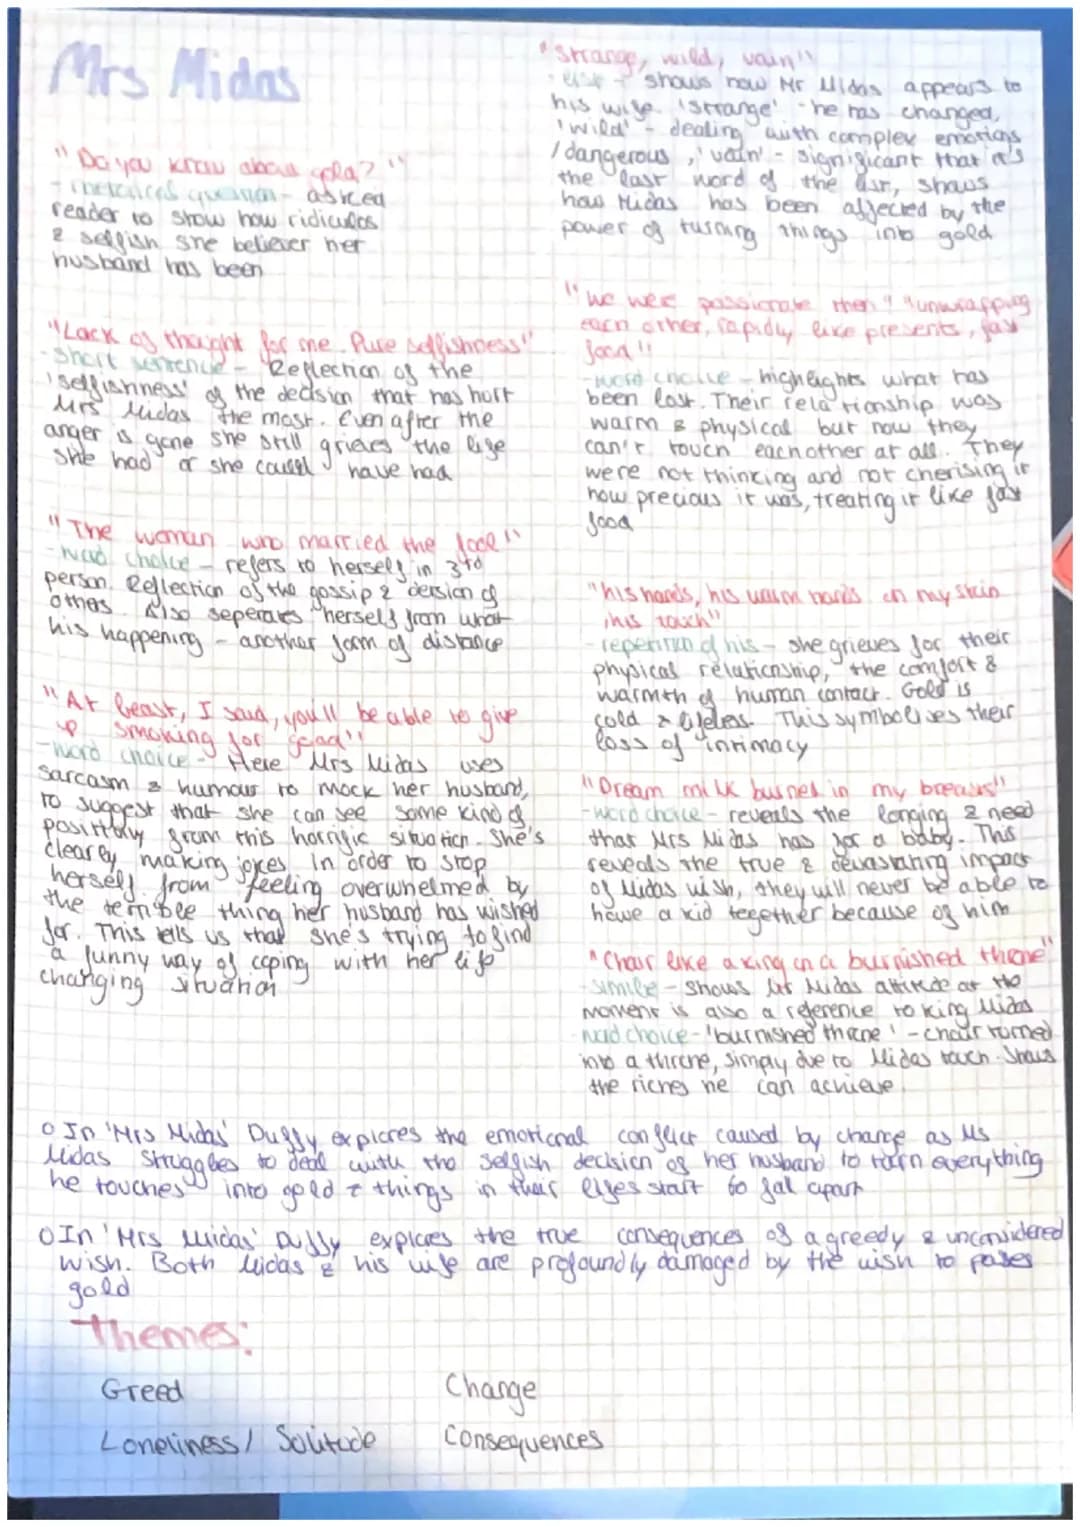 Mrs Midas
"Do you know about gold?"
- rhetorical question - asked
reader to show how ridiculos
& selfish she believer her
husband has been
"Lack of thought for me. Pure selfishness"
- short sentence - Reflection of the
'selfishness' of the decision that has hurt
Mrs Midas the most. Even after the
anger is gone she still grieves the life
she had or she could have had
"The woman who married the fool"
- word choice - refers to herself in 3rd
person. Reflection of the gossip & dersion of
others. Also seperates herself from what
his happening - another form of distance
"At least, I said, you'll be able to give
up smoking for good"
- word choice - Here Mrs Midas uses
sarcasm & humour to mock her husband,
to suggest that she can see some kind of
from this horrific situation. She's
clearly making jokes in order to stop
herself from feeling overwhelmed by
the terrible thing her husband has wished
for. This tells us that she's trying to find
a funny way of coping with her life
changing situation
"Strange, wild, vain"
- list - shows how Mr Midas appears to
his wife. 'Strange' - he has changed,
'wild' - dealing with complex emotions
/dangerous, 'vain' - significant that it's
the last word of the list, shows
how Midas has been affected by the
power of turning things into gold
"We were passionate then" "unwrapping
each other, rapidly like presents, fast
food"
- word choice - highlights what has
been lost. Their relationship was
warm & physical but now they
can't touch eachother at all. They
were not thinking and not cherising it
how precious it was, treating it like fast
food
"his hands, his warm hands on my skin
, his touch"
- repetition of his - she grieves for their
physical relationship, the comfort &
warmth of human contact. Gold is
cold & lifeless. This symbolises their
loss of intimacy
"Dream milk burned in my breasts"
- word choice - reveals the longing & need
that Mrs Midas has for a baby. This
reveals the true & devastating impact
of Midas wish, they will never be able to
have a kid together because of him
"Chair like a king on a burnished throne"
- simile - shows Mr Midas attitude at the
moment is also a reference to King Midas
- word choice - 'burnished throne' - chair turned
into a throne, simply due to Midas touch. Shows
the riches he can achieve.
o In 'Mrs Midas' Duffy explores the emotional conflict caused by change as Ms
Midas struggles to deal with the selfish decision of her husband to turn everything
he touches into gold & things in their lifes start to fall apart
o In 'Mrs Midas' Duffy explores the true consequences of a greedy & unconsidered
wish. Both Midas & his wife are profoundly damaged by the wish to
gold
Themes:
Greed Change
Loneliness/ Solitude Consequences